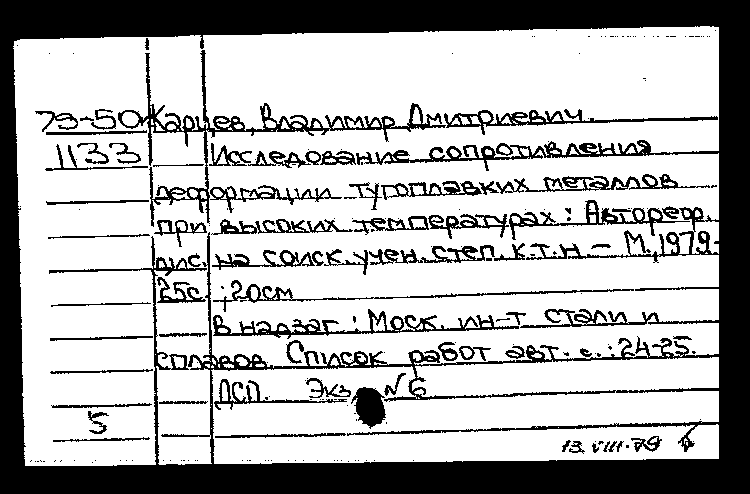 79-504 Карцев, Владимир Дмитриевич.
1133 Исследование сопротивления
деформации тугоплавких металлов
при высоких температурах : Автореф.
дис. на соиск. учен. степ. к.т.н. - М., 1979.-
25с. ; 20см
В надзаг : Моск. ин-т стали и
сплавов. Список работ авт. с. : 24-25.
ДСП. Экз. №6
5
13.VIII.79